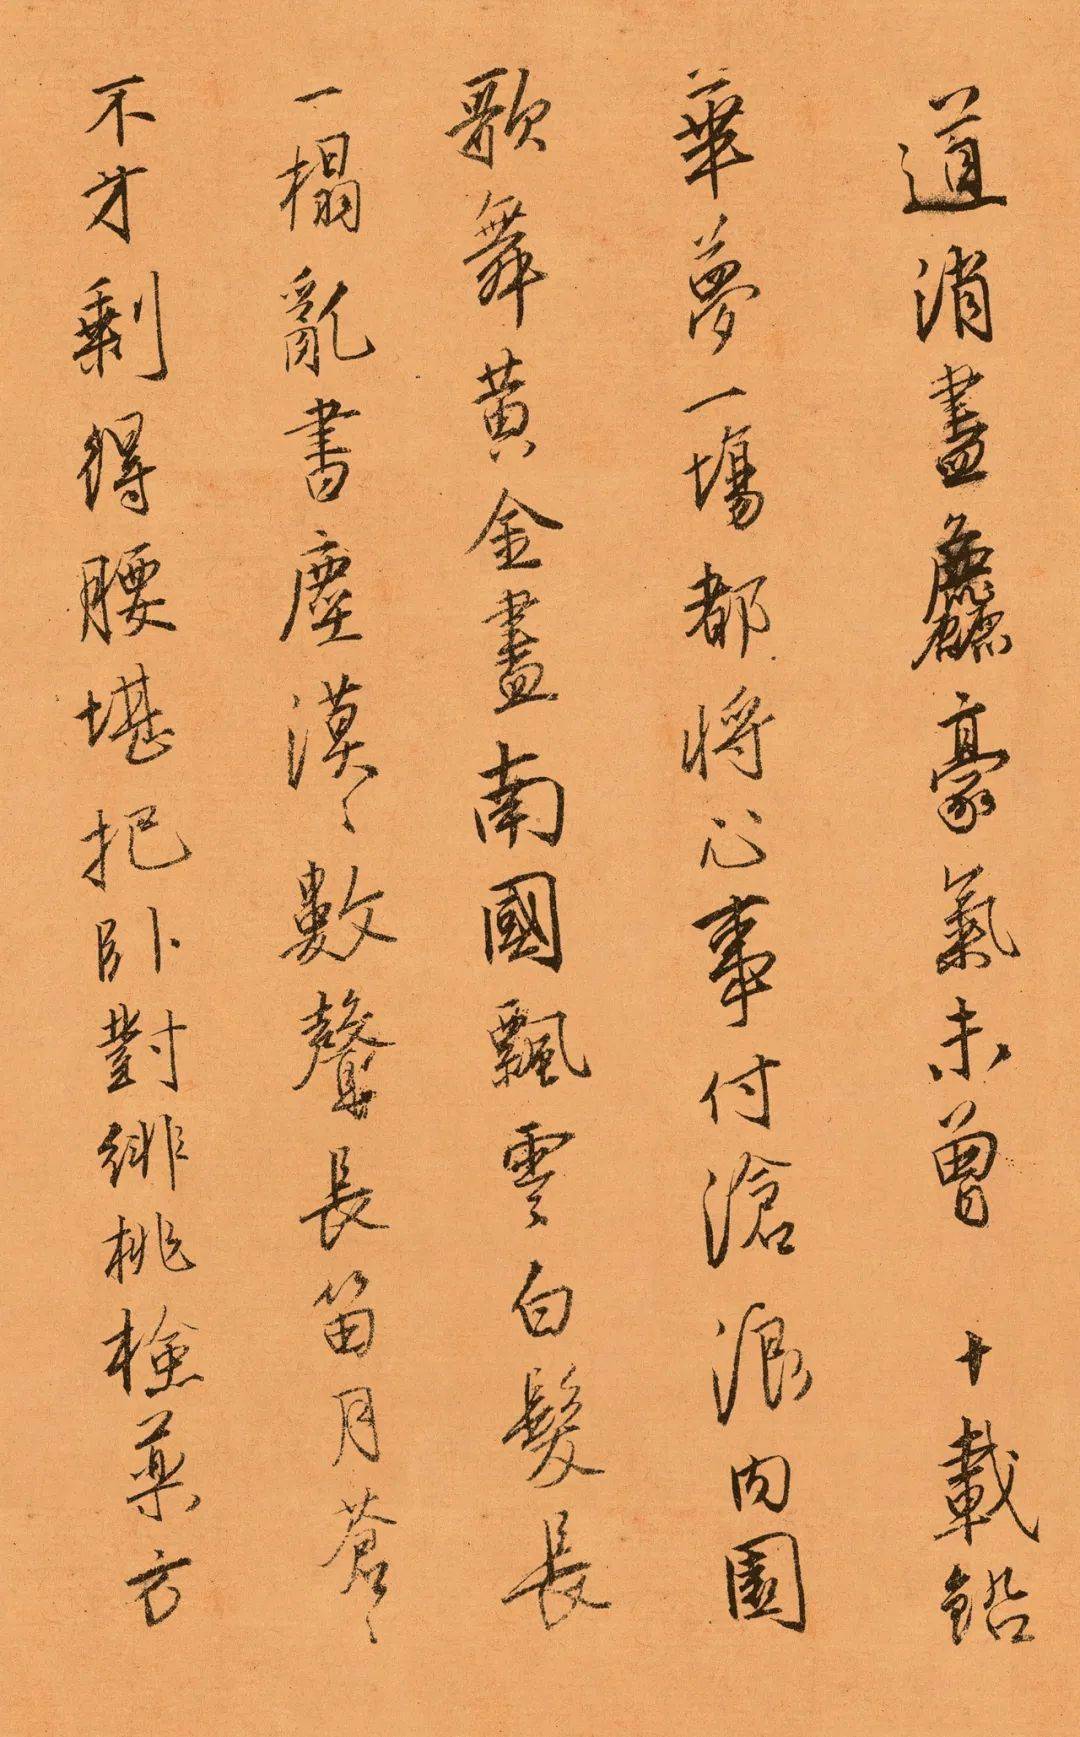 道消盡麤豪氣未曾 十載鉛
華夢一場都將心事付滄浪內園
歌舞黃金盡南國飄零白髮長
一榻亂書塵漠漠數聲長笛月蒼蒼
不才剩得腰堪把臥對緋桃檢藥方